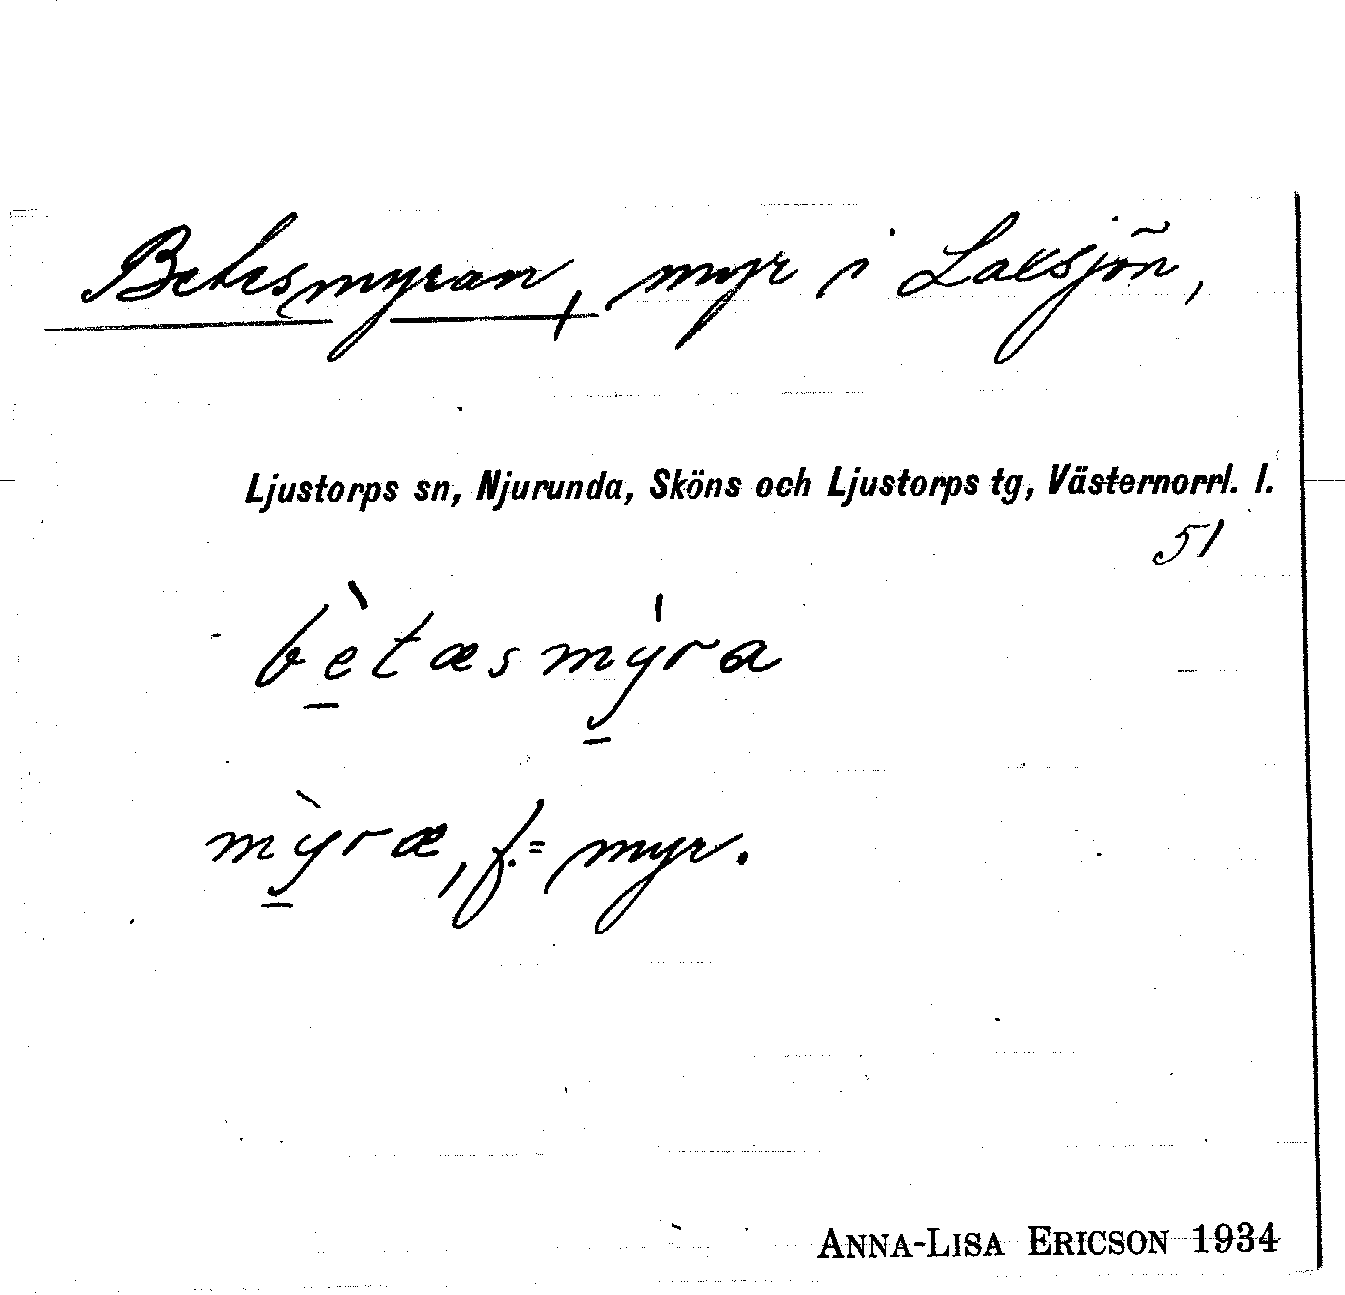 Betesmyran, myr i Laksjön,
Ljustorps sn, Njurunda, Sköns och Ljustorps tg, Västernorrl. l.
51
bètæsmy̍ra
mỳræ, f.= myr.
ANNA-LISA ERICSON 1934